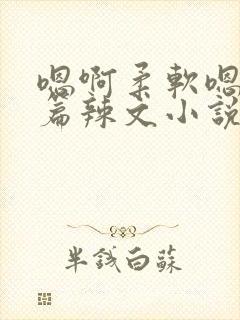 嗯啊柔軟嗯
篇辣文小說
半錢白蘇